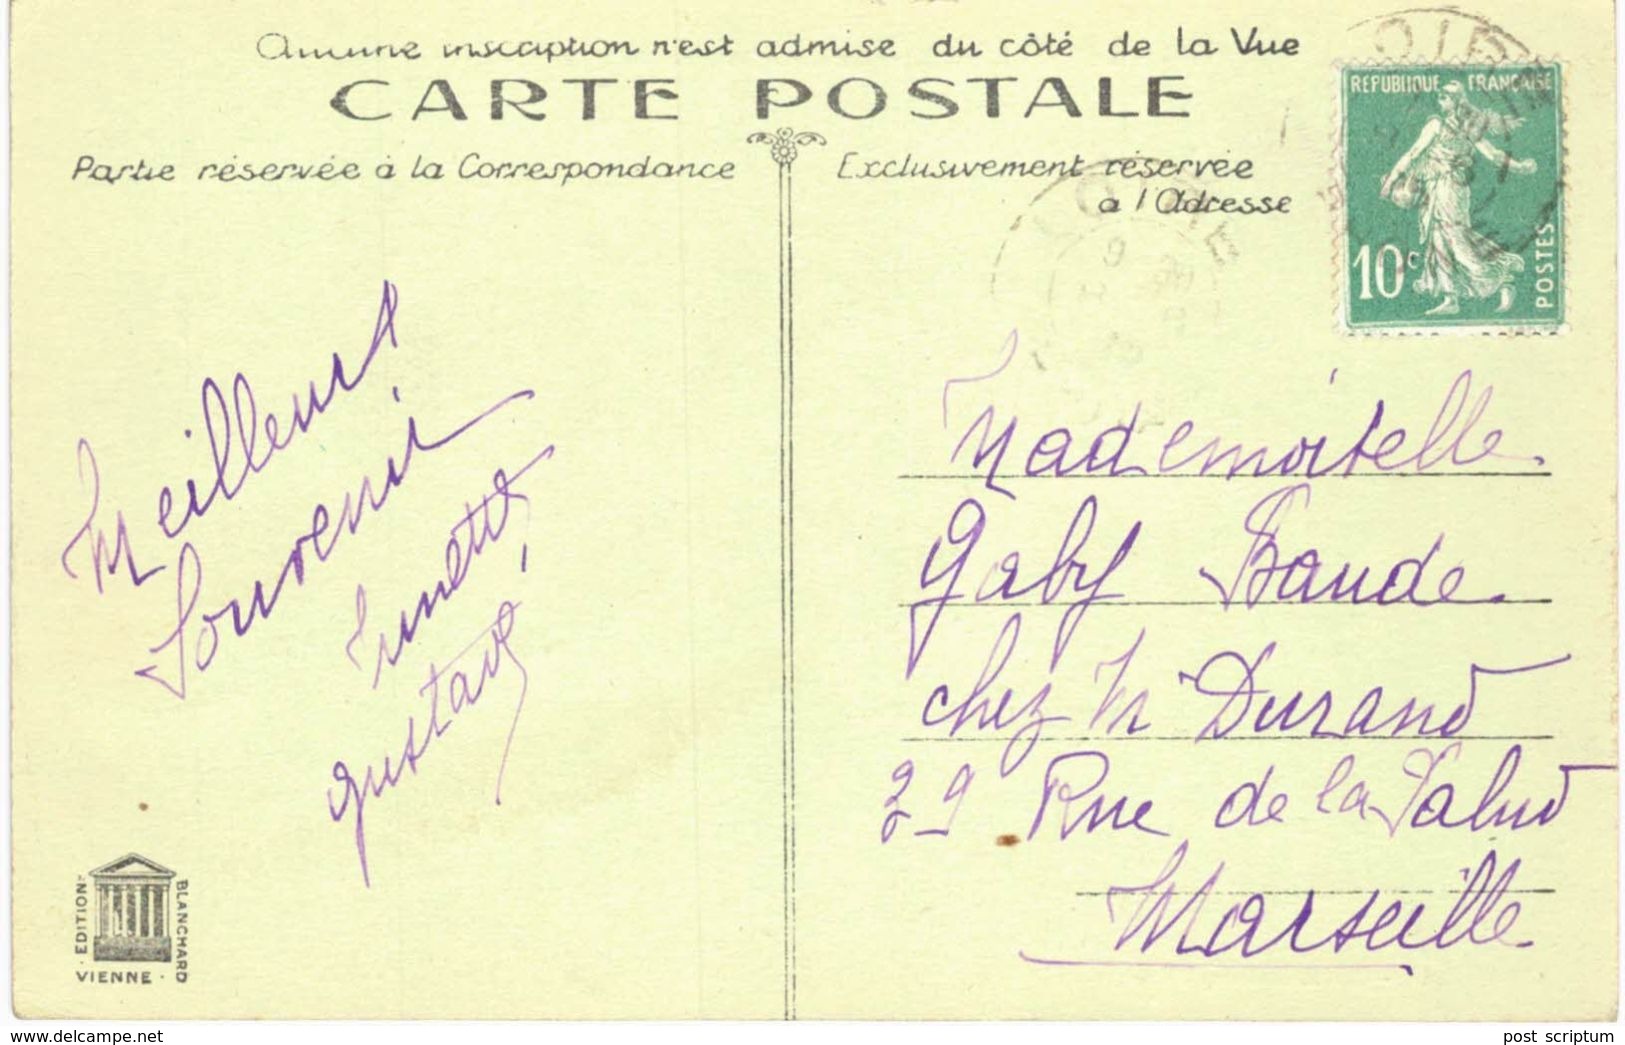 Aucune inscription n'est admise du côté de la Vue
CARTE POSTALE
Partie réservée à la Correspondance
Exclusivement réservée
à l'Adresse
REPUBLIQUE FRANÇAISE
10c
POSTES
Meilleurs
Souvenir
gustave
Mademoiselle
Gaby Baude
chez M Durand
29 Rue de la Palud
Marseille
EDITION
BLANCHARD
VIENNE
delcampe.net
post scriptum